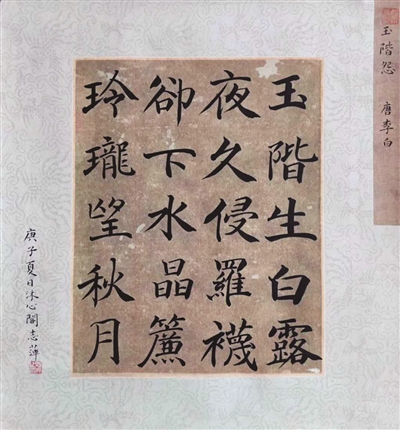 玉階怨 唐李白
玉階生白露
夜久侵羅襪
卻下水晶簾
玲瓏望秋月
庚子夏日沐心閣志萍